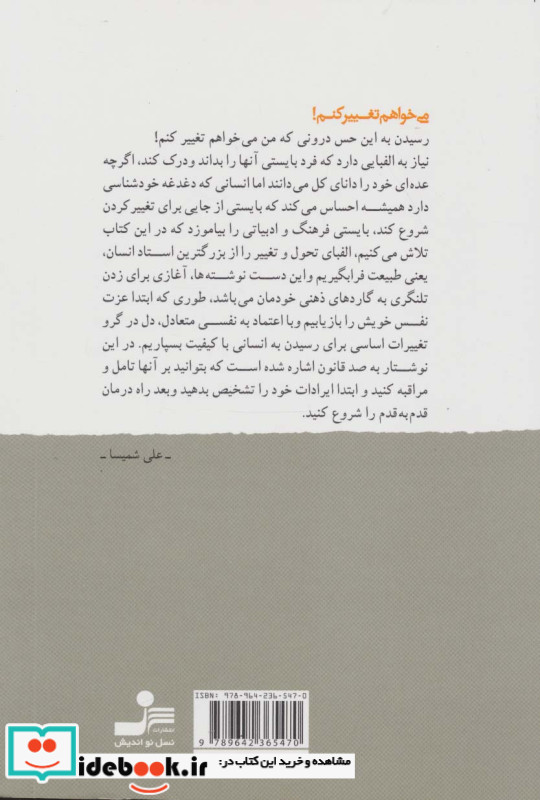 می‌خواهم تغییر کنم!
رسیدن به این حس درونی که من می‌خواهم تغییر کنم!
نیاز به الفبایی دارد که فرد بایستی آنها را بداند ودرک کند، اگرچه
عده‌ای خود را دانای کل می‌دانند اما انسانی که دغدغه خودشناسی
دارد همیشه احساس می‌کند که بایستی از جایی برای تغییرکردن
شروع کند، بایستی فرهنگ و ادبیاتی را بیاموزد که در این کتاب
تلاش می‌کنیم، الفبای تحول و تغییر را از بزرگترین استاد انسان،
یعنی طبیعت فرابگیریم واین دست نوشته‌ها، آغازی برای زدن
تلنگری به گاردهای ذهنی خودمان می‌باشد، طوری که ابتدا عزت
نفس خویش را بازیابیم وبا اعتماد به نفسی متعادل، دل در گرو
تغییرات اساسی برای رسیدن به انسانی با کیفیت بسپاریم. در این
نوشتار به صد قانون اشاره شده است که بتوانید بر آنها تامل و
مراقبه کنید و ابتدا ایرادات خود را تشخیص بدهید وبعد راه درمان
قدم‌به‌قدم را شروع کنید.
ـ علی شمیسا ـ
ISBN: 978-964-236-547-0
9 789642 365470
انتشارات
نسل نو اندیش
مشاهده و خرید این کتاب در:
idebook.ir